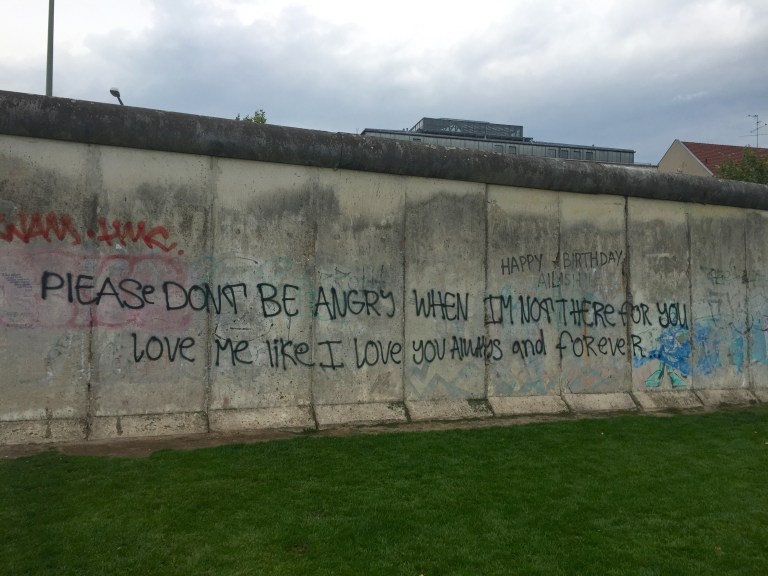 HAPPY BIRTHDAY
PlEASe DONT BE ANGRY WHEN IM NOT THERE FOR YOU
love Me like I love you AlwAys and foreveR